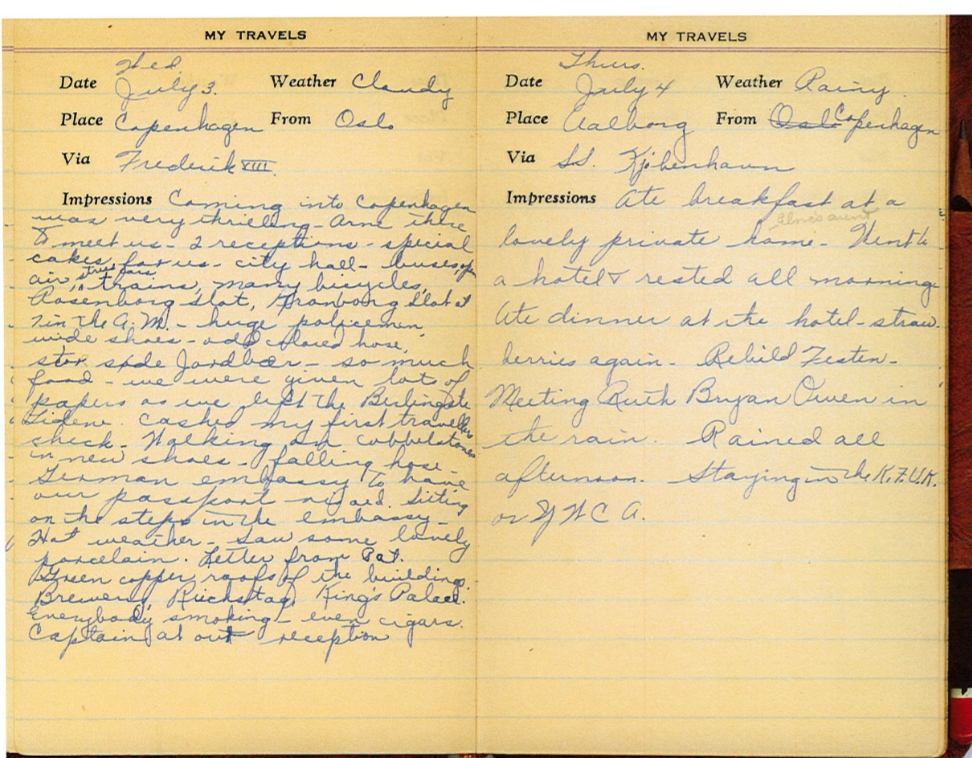 MY TRAVELS
Wed
Date July 3. Weather Cloudy
Place Copenhagen From Oslo
Via Frederik VIII.
Impressions Coming into Copenhagen
was very thrilling - Arne there
to meet us - 2 receptions - special
cakes for us - city hall - buses, open
air trains, many bicycles,
Rosenborg Slot, Kronborg Slot at
7 in the A.M. - huge policemen,
wide shoes - odd colored hose,
Jordbær - so much
food - we were given lots of
papers as we left the Berlingske
Tidene. Cashed my first travellers
check - Walking on cobbelstones
in new shoes - falling hose -
German embassy to have
our passport visaed. Sitting
on the steps in the embassy -
Hot weather - Saw some lovely
porcelain. Letter from Pat.
Green copper roofs of the buildings.
Brewery, Riichstag, King's Palace.
Everybody smoking - even cigars.
Captain at our reception
MY TRAVELS
Thurs.
Date July 4 Weather Rainy.
Place Aalborg From Oslo Copenhagen
Via S.S. Kjöbenhavn
Impressions Ate breakfast at a
aunt
lovely private home - Went to
a hotel & rested all morning.
Ate dinner at the hotel - straw-
berries again - Rebild Festen -
Meeting Ruth Bryan Owen in
the rain. Rained all
afternoon. Staying in the K.F.U.K.
or Y W C A.